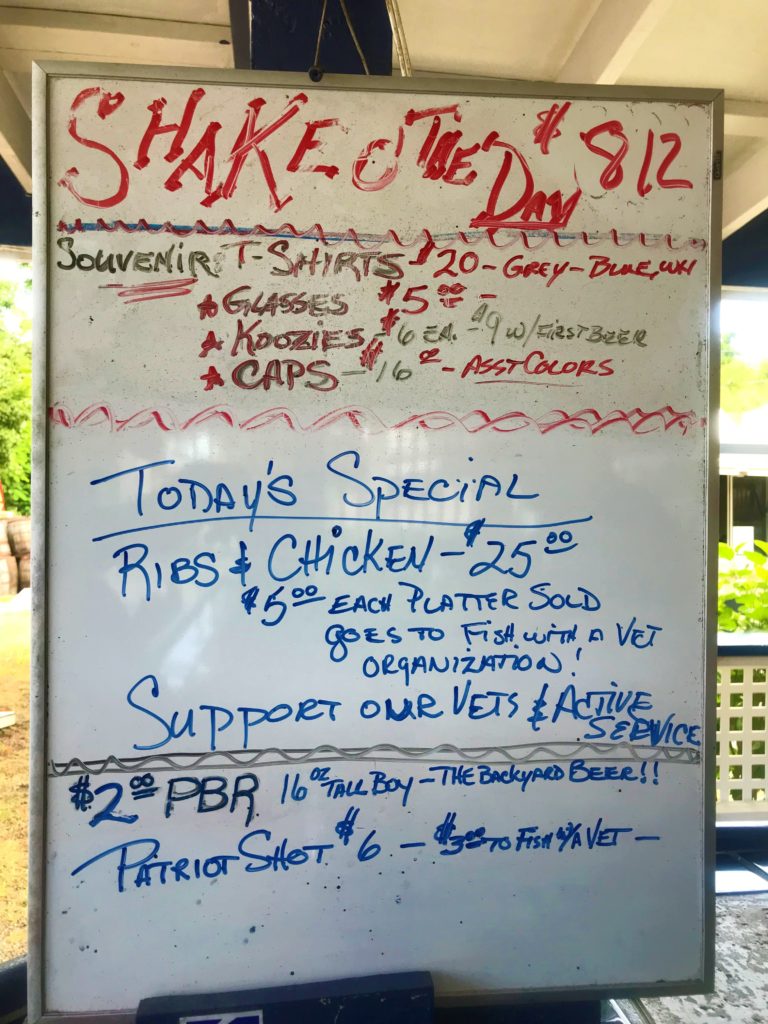 SHAKE O' THE DAY $812
SOUVENIR T-SHIRTS - $20 - GREY - BLUE, WH
★ GLASSES $5.00 -
★ KOOZIES - $6 EA. - $9 W/ FIRST BEER
★ CAPS - $16 - ASST COLORS
TODAY'S SPECIAL
RIBS & CHICKEN - $25.00
$5.00 EACH PLATTER SOLD
GOES TO FISH WITH A VET
ORGANIZATION!
SUPPORT OUR VETS & ACTIVE
SERVICE
$2.00 PBR 16 OZ TALL BOY - THE BACKYARD BEER!!
PATRIOT SHOT $6 - $3.00 TO FISH W/A VET -